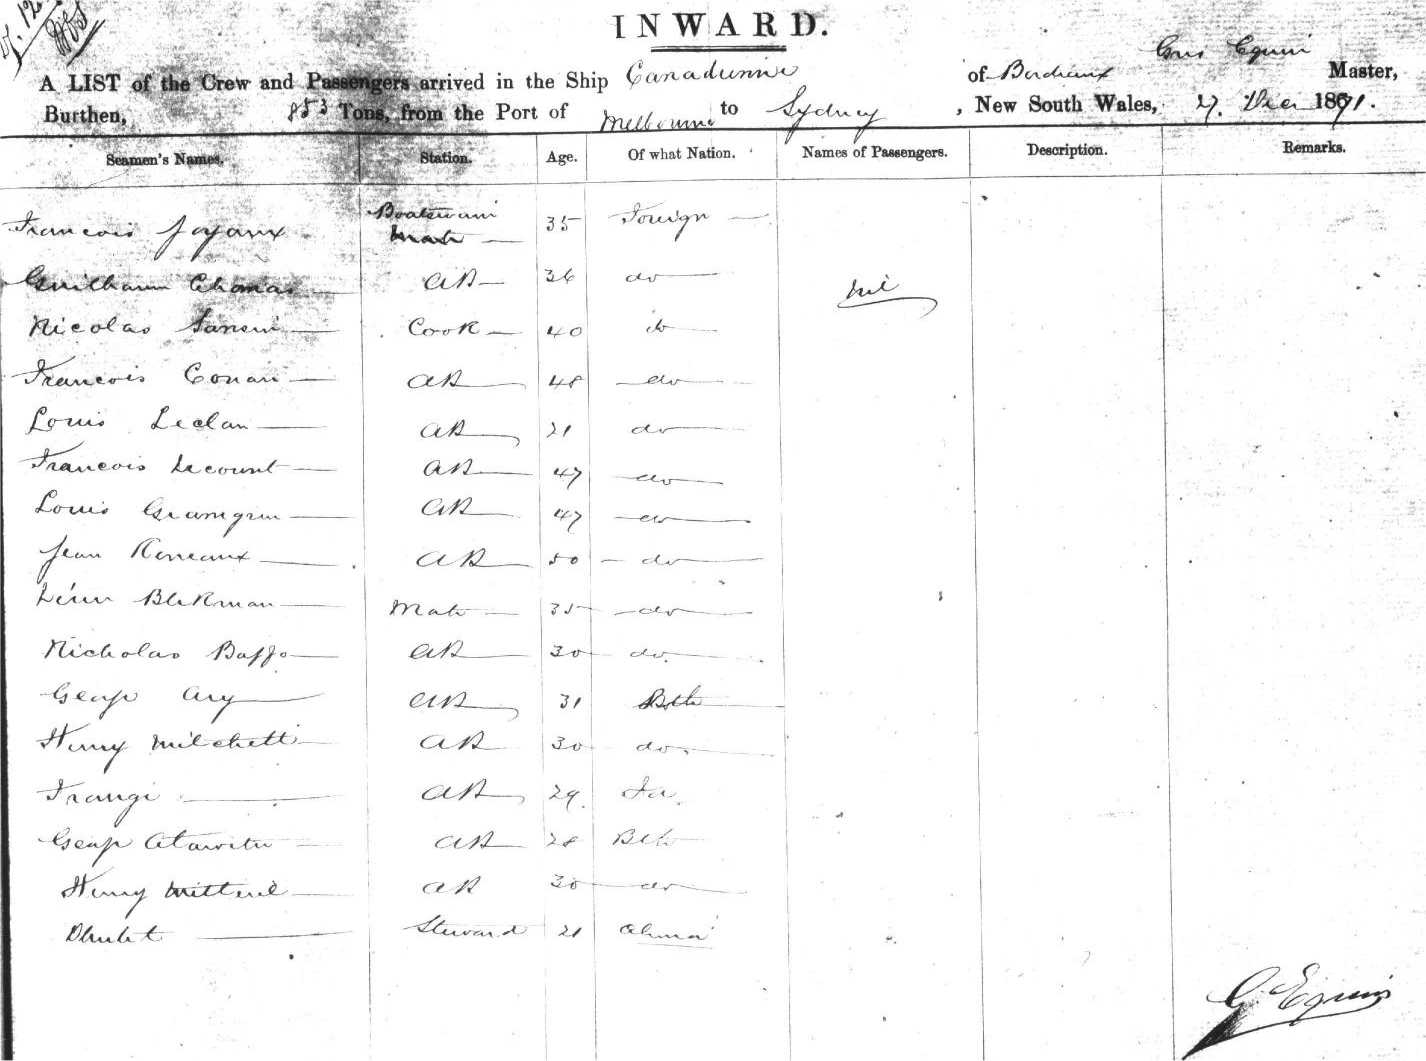 INWARD.
A LIST of the Crew and Passengers arrived in the Ship Canadienne of Bordeaux Gus Equin Master,
Burthen, 853 Tons, from the Port of Melbourne to Sydney, New South Wales, 27. Decr 1871.
Seamen's Names. Station. Age. Of what Nation. Names of Passengers. Description. Remarks.
Francois Joyaux Boatswain Mate 35 Foreign
Guilhaum Thomas AB 36 do nil
Nicolas Cook 40 do
Francois Conan AB 48 do
Louis Leclan AB 21 do
Francois Lecount AB 47 do
Louis AB 47 do
Jean Reneaux AB 50 do
Blekman Mate 35 do
Nicholas Baffo AB 30 do
Geo Ary AB 31 Bth
Henry Mitchell AB 30 do
Frangi AB 29 For
Geo AB 28 Bth
Henry AB 30 do
Steward 21 China
G. Equin